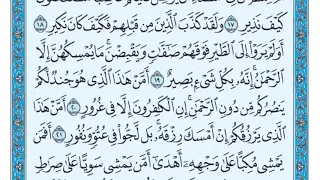 كَيْفَ نَذِيرِ ١٧ وَلَقَدْ كَذَّبَ ٱلَّذِينَ مِن قَبْلِهِمْ فَكَيْفَ كَانَ نَكِيرِ ١٨
أَوَلَمْ يَرَوْا۟ إِلَى ٱلطَّيْرِ فَوْقَهُمْ صَٰٓفَّٰتٍ وَيَقْبِضْنَ مَا يُمْسِكُهُنَّ إِلَّا
ٱلرَّحْمَٰنُ إِنَّهُۥ بِكُلِّ شَىْءٍۭ بَصِيرٌ ١٩ أَمَّنْ هَٰذَا ٱلَّذِى هُوَ جُندٌ لَّكُمْ
يَنصُرُكُم مِّن دُونِ ٱلرَّحْمَٰنِ إِنِ ٱلْكَٰفِرُونَ إِلَّا فِى غُرُورٍ ٢٠ أَمَّنْ هَٰذَا
ٱلَّذِى يَرْزُقُكُمْ إِنْ أَمْسَكَ رِزْقَهُۥ بَل لَّجُّوا۟ فِى عُتُوٍّ وَنُفُورٍ ٢١ أَفَمَن
يَمْشِى مُكِبًّا عَلَىٰ وَجْهِهِۦٓ أَهْدَىٰٓ أَمَّن يَمْشِى سَوِيًّا عَلَىٰ صِرَٰطٍ